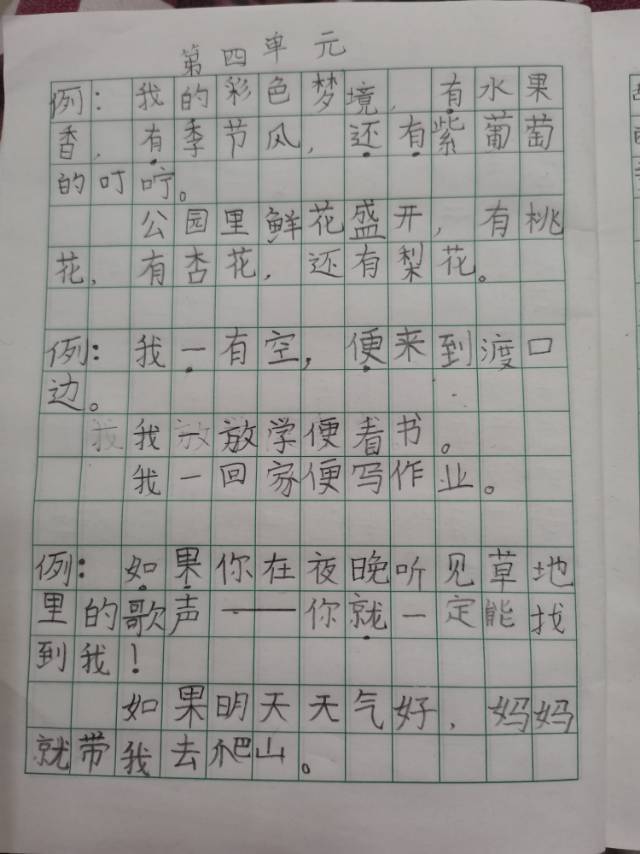 第四单元
例：我的彩色梦境，有水果
香，有季节风，还有紫葡萄
的叮咛。
公园里鲜花盛开，有桃
花，有杏花，还有梨花。
例：我一有空，便来到渡口
边。
我一放学便看书。
我一回家便写作业。
例：如果你在夜晚听见草地
里的歌声——你就一定能找
到我！
如果明天天气好，妈妈
就带我去爬山。